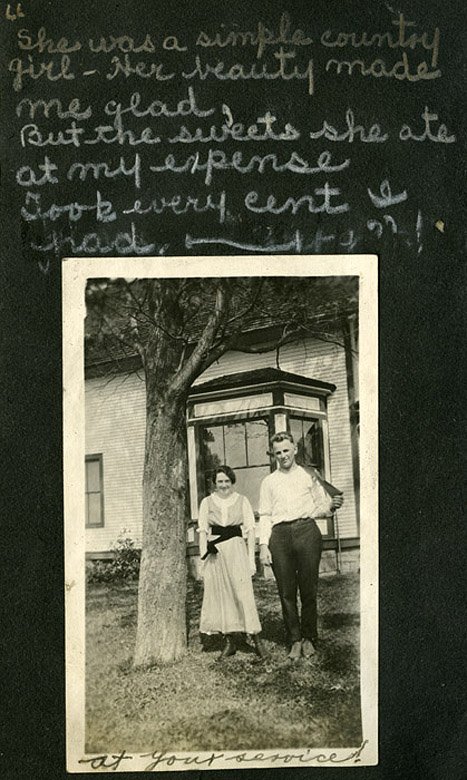 "She was a simple country
girl - Her beauty made
me glad,
But the sweets she ate
at my expense
Took every cent I
had.
at your service!